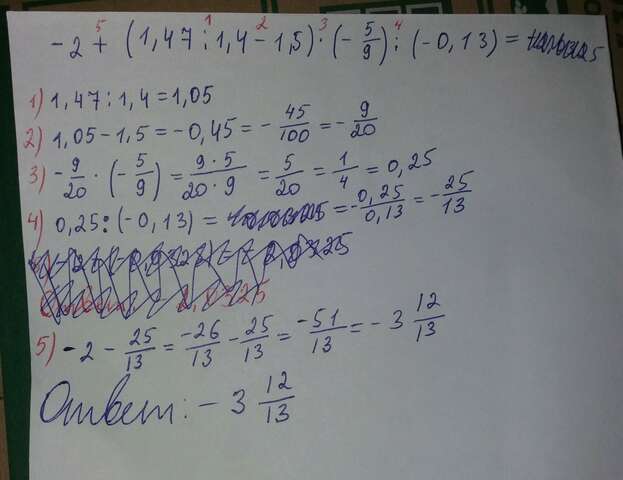 -2 + (1,47 : 1,4 - 1,5) · (-5/9) : (-0,13) =
1) 1,47 : 1,4 = 1,05
2) 1,05 - 1,5 = -0,45 = -45/100 = -9/20
3) -9/20 · (-5/9) = 9·5/20·9 = 5/20 = 1/4 = 0,25
4) 0,25 : (-0,13) = = -0,25/0,13 = -25/13
5) -2 - 25/13 = -26/13 - 25/13 = -51/13 = -3 12/13
Ответ: -3 12/13